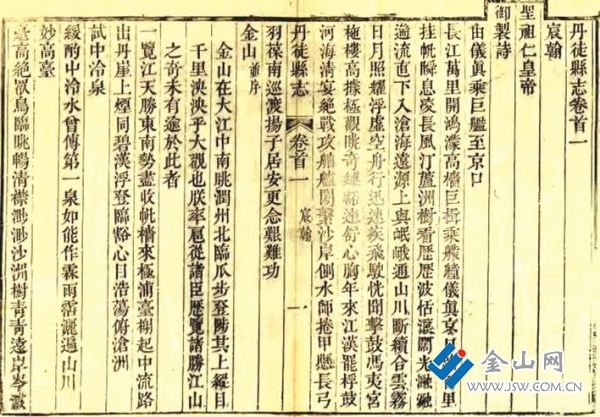 丹徒縣志卷首一
宸翰
聖祖仁皇帝
御製詩
由儀真乘巨艦至京口
長江萬里開鴻濛高檣巨楫乘艨艟儀真京口里
挂帆瞬息凌長風汀蘆洲樹看歷歷波恬瀾闊光瀜瀜
遡流直下入滄海遠源上與岷峨通山川斷續合雲霧
日月照耀浮虛空舟行迅速疾飛駛恍聞擊鼓馮夷宮
柁樓高據極觀眺奇遠舒心胸年來江漢罷桴鼓
河海清宴絕戰攻舳艫閒繫沙岸側水師捲甲懸長弓
丹徒縣志 卷首一 宸翰 一
羽葆南巡渡揚子居安更念艱難功
金山並序
金山在大江中南眺潤州北臨瓜步登陟其上縱目
千里泱泱乎大觀也朕率扈從諸臣歷覽諸勝江山
之奇未有逾於此者
一覽江天勝東南勢盡收帆檣來極浦臺榭起中流路
出丹崖上煙同碧漢浮登臨豁心目浩蕩俯滄洲
試中泠泉
緩酌中泠水曾傳第一泉如能作霖雨沾灑遍山川
妙高臺
臺高絕鳥臨眺暢清襟渺渺沙洲樹青青遠岸岑波
金山网
WWW.JSW.COM.CN